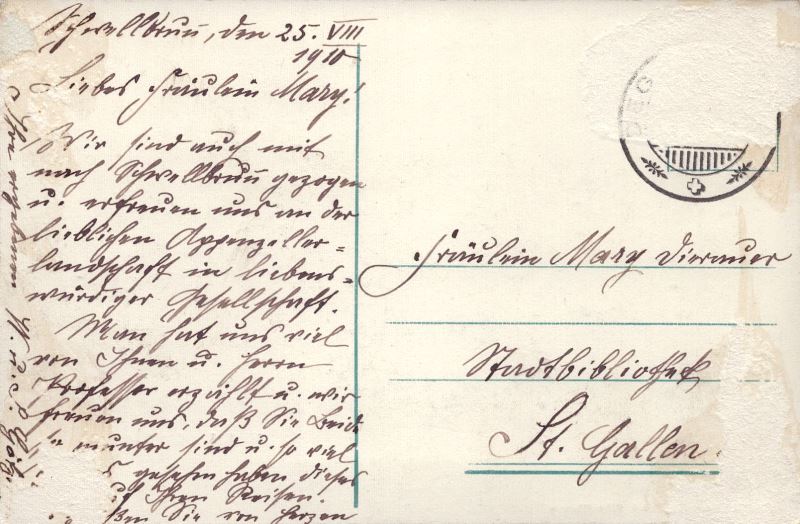 Schwellbrunn, den 25. VIII
1910
Liebes Fräulein Mary!
Wir sind auch mit
nach Schwellbrunn gezogen
u. erfreuen uns an der
lieblichen Appenzeller-
landschaft in liebens-
würdiger Gesellschaft.
Man hat uns viel
von Ihnen u. Herrn
Professor erzählt u. wir
freuen uns, daß Sie Beide
munter sind u. so viel
gesehen haben, dieses
Ihren Reisen.
Sie von Herzen
Ihre ergebenen
DEG
Fräulein Mary Dierauer
Stadtbibliothek
St. Gallen.